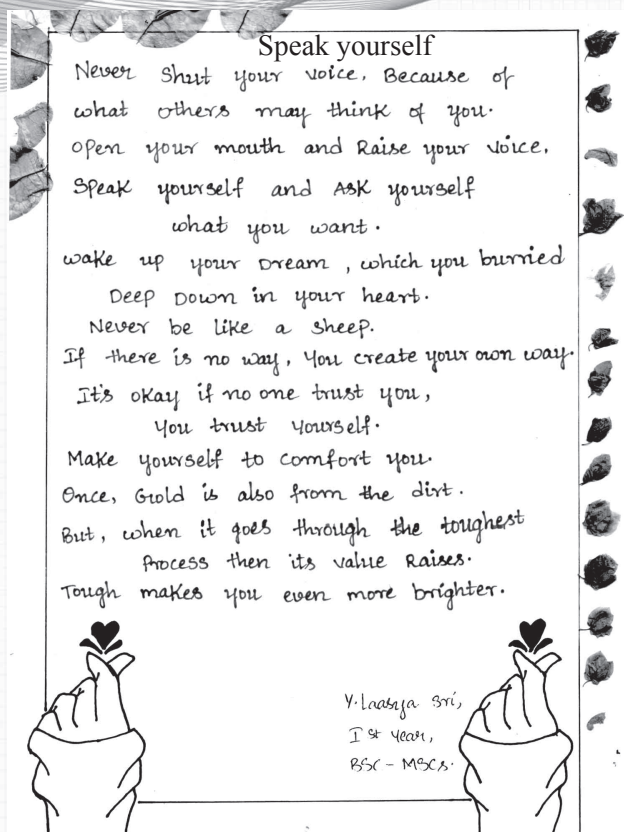 Speak yourself
Never Shut your voice, Because of
what others may think of you.
Open your mouth and Raise your voice,
Speak yourself and Ask yourself
what you want.
wake up your Dream, which you burried
Deep Down in your heart.
Never be like a sheep.
If there is no way, You create your own way.
It's okay if no one trust you,
You trust Yourself.
Make yourself to comfort you.
Once, Gold is also from the dirt.
But, when it goes through the toughest
Process then its value Raises.
Tough makes you even more brighter.
Y. Laasya Sri,
I st year,
BSC - MSCs.